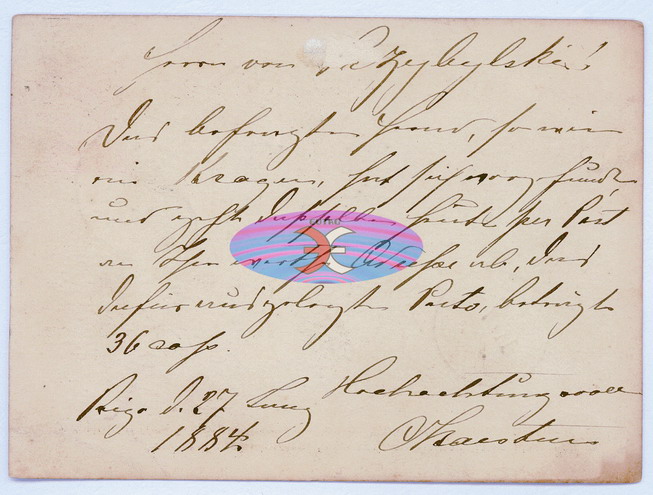 Herrn von Przybylski!
Das befragte Hemd, so wie
ein Kragen, hat sich vorgefunden
und geht dasselbe heute per Post
an Ihre werthe Adresse ab, das
dafür ausgelegte Porto, beträgt
36 Cop.
Riga d. 27 Juny Hochachtungsvoll
1884.